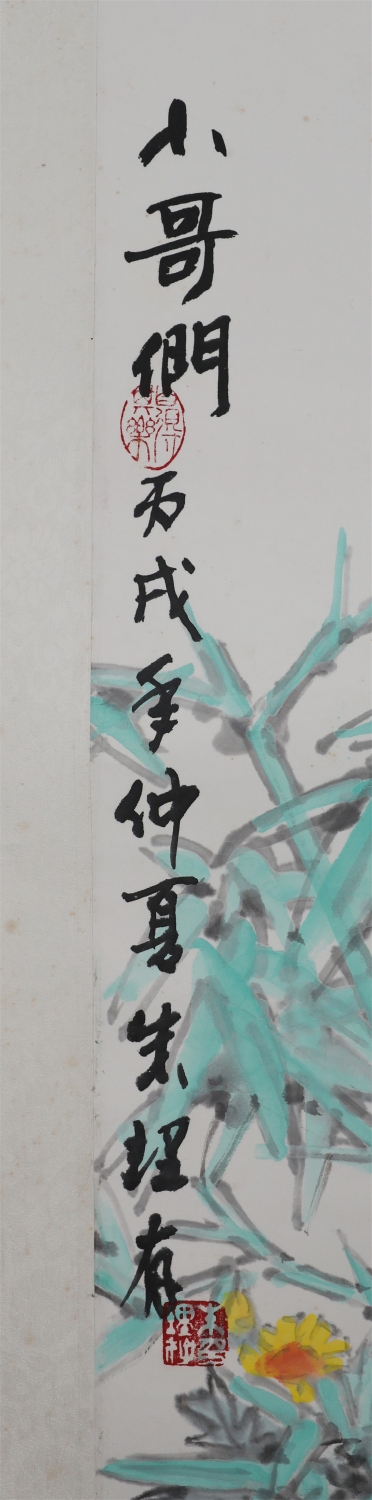 小哥們
丙戌年仲夏朱理存